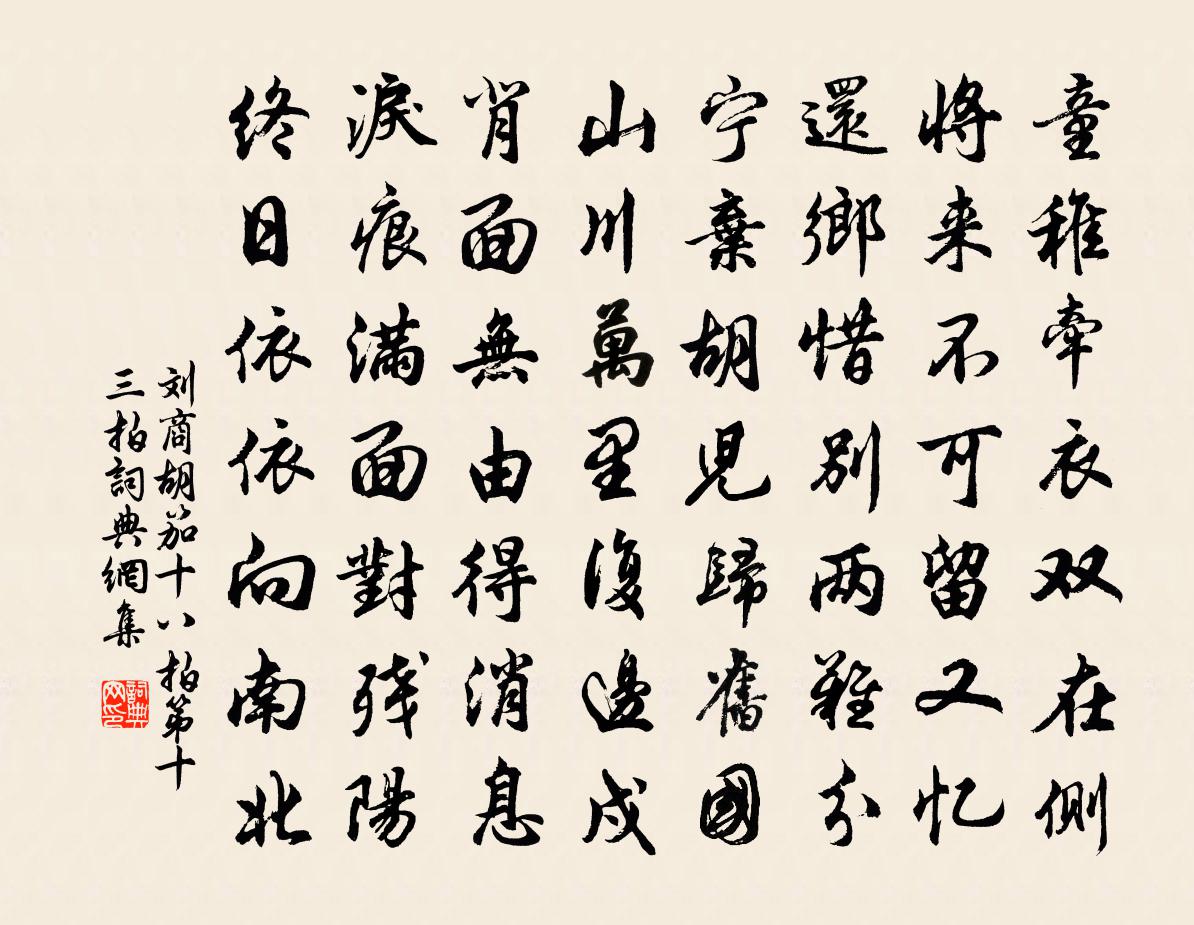 童稚牵衣双在側
將来不可留又忆
還鄉惜别两難分
宁棄胡兒歸舊國
山川萬里復邊戍
背面無由得消息
淚痕滿面對残陽
终日依依向南北
刘商胡笳十八拍第十
三拍詞典網集
詞典网印